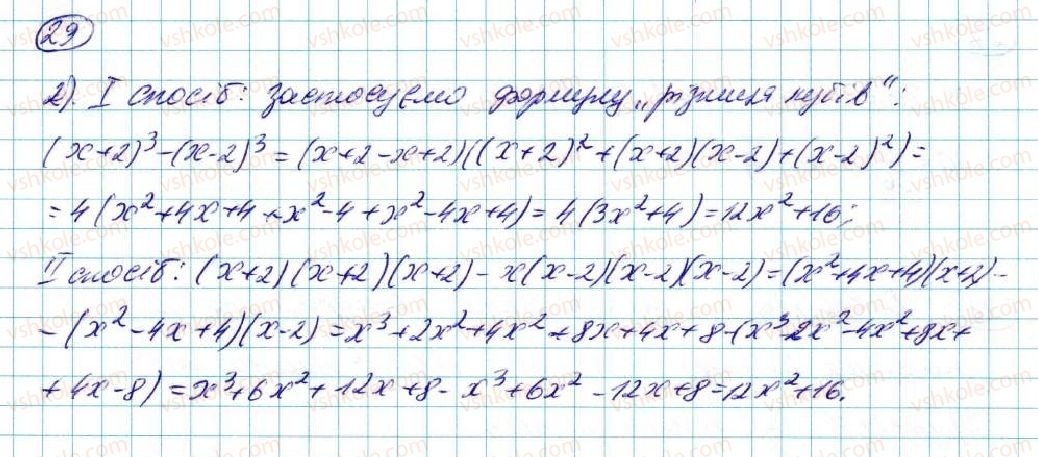 29
2). I спосіб: застосуємо формулу „різниця кубів“:
(x+2)³-(x-2)³=(x+2-x+2)((x+2)²+(x+2)(x-2)+(x-2)²)=
=4(x²+4x+4+x²-4+x²-4x+4)=4(3x²+4)=12x²+16;
II спосіб: (x+2)(x+2)(x+2)-x(x-2)(x-2)(x-2)=(x²+4x+4)(x+2)-
-(x²-4x+4)(x-2)=x³+2x²+4x²+8x+4x+8-(x³-2x²-4x²+8x+
+4x-8)=x³+6x²+12x+8-x³+6x²-12x+8=12x²+16.